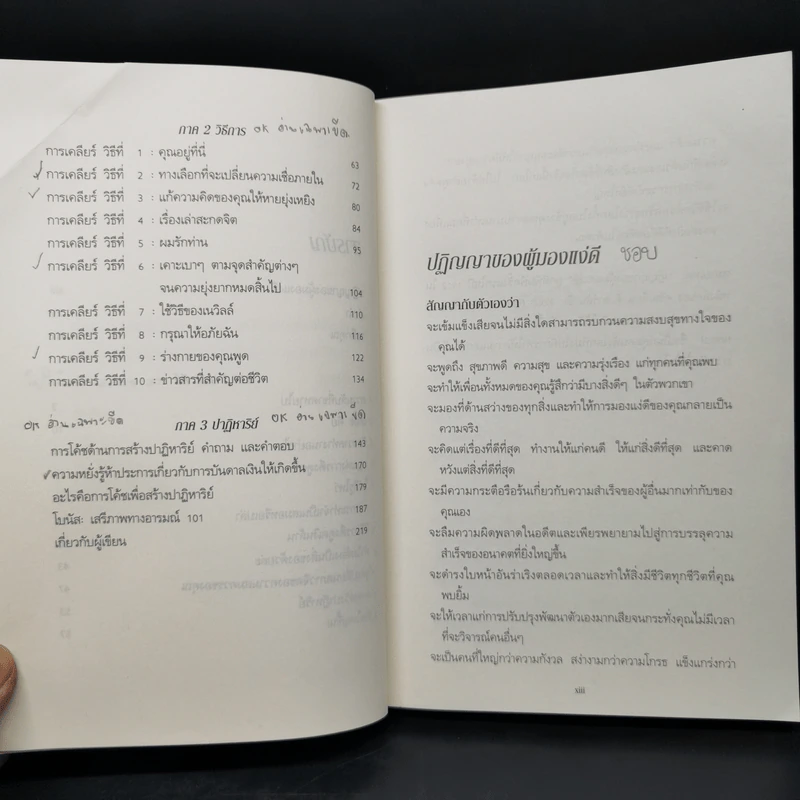 ภาค 2 วิธีการ OK อ่านเฉพาะขีด
การเคลียร์ วิธีที่ 1 : คุณอยู่ที่นี่ 63
การเคลียร์ วิธีที่ 2 : ทางเลือกที่จะเปลี่ยนความเชื่อภายใน 72
การเคลียร์ วิธีที่ 3 : แก้ความคิดของคุณให้หายยุ่งเหยิง 80
การเคลียร์ วิธีที่ 4 : เรื่องเล่าสะกดจิต 84
การเคลียร์ วิธีที่ 5 : ผมรักท่าน 95
การเคลียร์ วิธีที่ 6 : เคาะเบาๆ ตามจุดสำคัญต่างๆ
จนความยุ่งยากหมดสิ้นไป 104
การเคลียร์ วิธีที่ 7 : ใช้วิธีของเนวิลล์ 110
การเคลียร์ วิธีที่ 8 : กรุณาให้อภัยฉัน 116
การเคลียร์ วิธีที่ 9 : ร่างกายของคุณพูด 122
การเคลียร์ วิธีที่ 10 : ข่าวสารที่สำคัญต่อชีวิต 134
OK อ่านเฉพาะขีด ภาค 3 ปาฏิหาริย์ OK อ่านเฉพาะขีด
การโค้ชด้านการสร้างปาฏิหาริย์ คำถาม และคำตอบ 143
ความหยั่งรู้ห้าประการเกี่ยวกับการบันดาลเงินให้เกิดขึ้น 170
อะไรคือการโค้ชเพื่อสร้างปาฏิหาริย์ 179
โบนัส: เสรีภาพทางอารมณ์ 101 187
เกี่ยวกับผู้เขียน 219
ปฏิญญาของผู้มองแง่ดี ชอบ
สัญญากับตัวเองว่า
จะเข้มแข็งเสียจนไม่มีสิ่งใดสามารถรบกวนความสงบสุขทางใจของ
คุณได้
จะพูดถึง สุขภาพดี ความสุข และความรุ่งเรือง แก่ทุกคนที่คุณพบ
จะทำให้เพื่อนทั้งหมดของคุณรู้สึกว่ามีบางสิ่งดีๆ ในตัวพวกเขา
จะมองที่ด้านสว่างของทุกสิ่งและทำให้การมองแง่ดีของคุณกลายเป็น
ความจริง
จะคิดแต่เรื่องที่ดีที่สุด ทำงานให้แก่คนดี ให้แก่สิ่งดีที่สุด และคาด
หวังแต่สิ่งที่ดีที่สุด
จะมีความกระตือรือร้นเกี่ยวกับความสำเร็จของผู้อื่นมากเท่ากับของ
คุณเอง
จะลืมความผิดพลาดในอดีตและเพียรพยายามไปสู่การบรรลุความ
สำเร็จของอนาคตที่ยิ่งใหญ่ขึ้น
จะดำรงใบหน้าอันร่าเริงตลอดเวลาและทำให้สิ่งมีชีวิตทุกชีวิตที่คุณ
พบยิ้ม
จะให้เวลาแก่การปรับปรุงพัฒนาตัวเองมากเสียจนกระทั่งคุณไม่มีเวลา
ที่จะวิจารณ์คนอื่นๆ
จะเป็นคนที่ใหญ่กว่าความกังวล สง่างามกว่าความโกรธ แข็งแกร่งกว่า
xiii